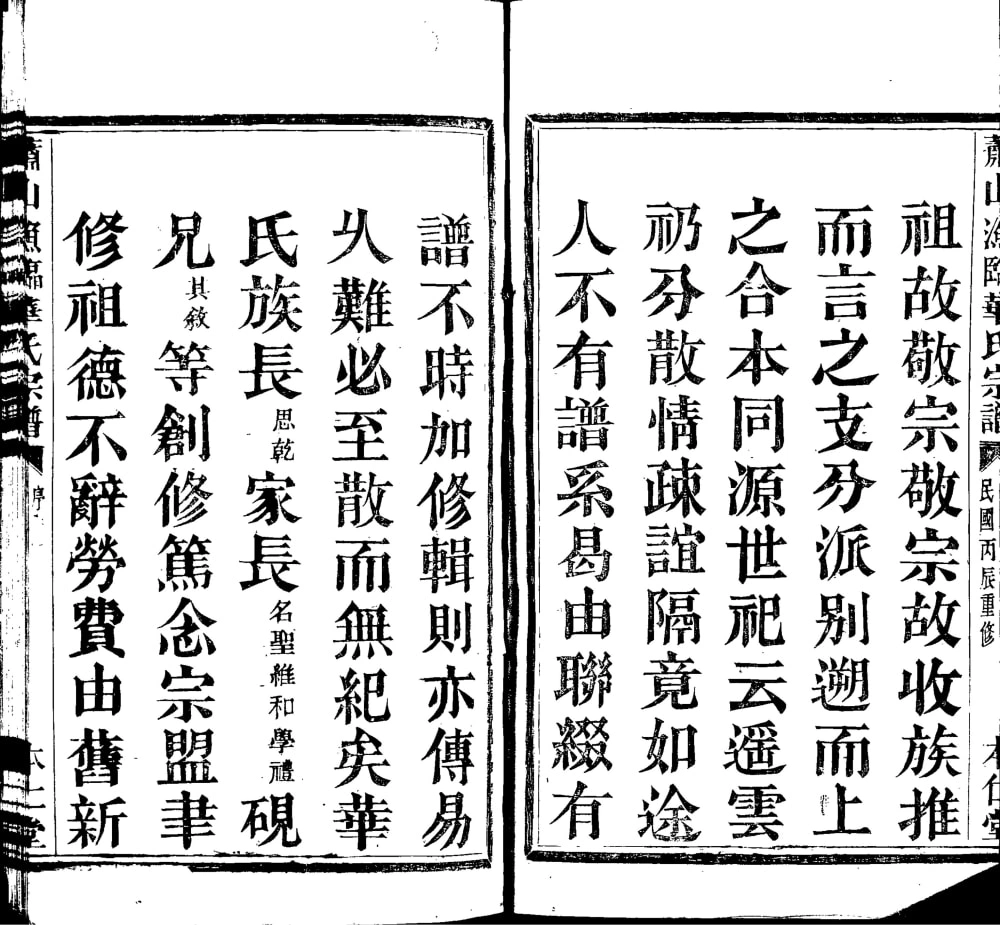 蕭山漁臨華氏宗譜 民國丙辰重修 本仁堂
祖故敬宗敬宗故收族推
而言之支分派別遡而上
之合本同源世祀云遥雲
礽分散情疎誼隔竟如途
人不有譜系曷由聯綴有
譜不時加修輯則亦傳易
乆難必至散而無紀矣華
氏族長思乾家長名聖維和學禮硯
兄其敘等創修篤念宗盟聿
修祖德不辭勞費由舊新
蕭山漁臨華氏宗譜 序 本仁堂